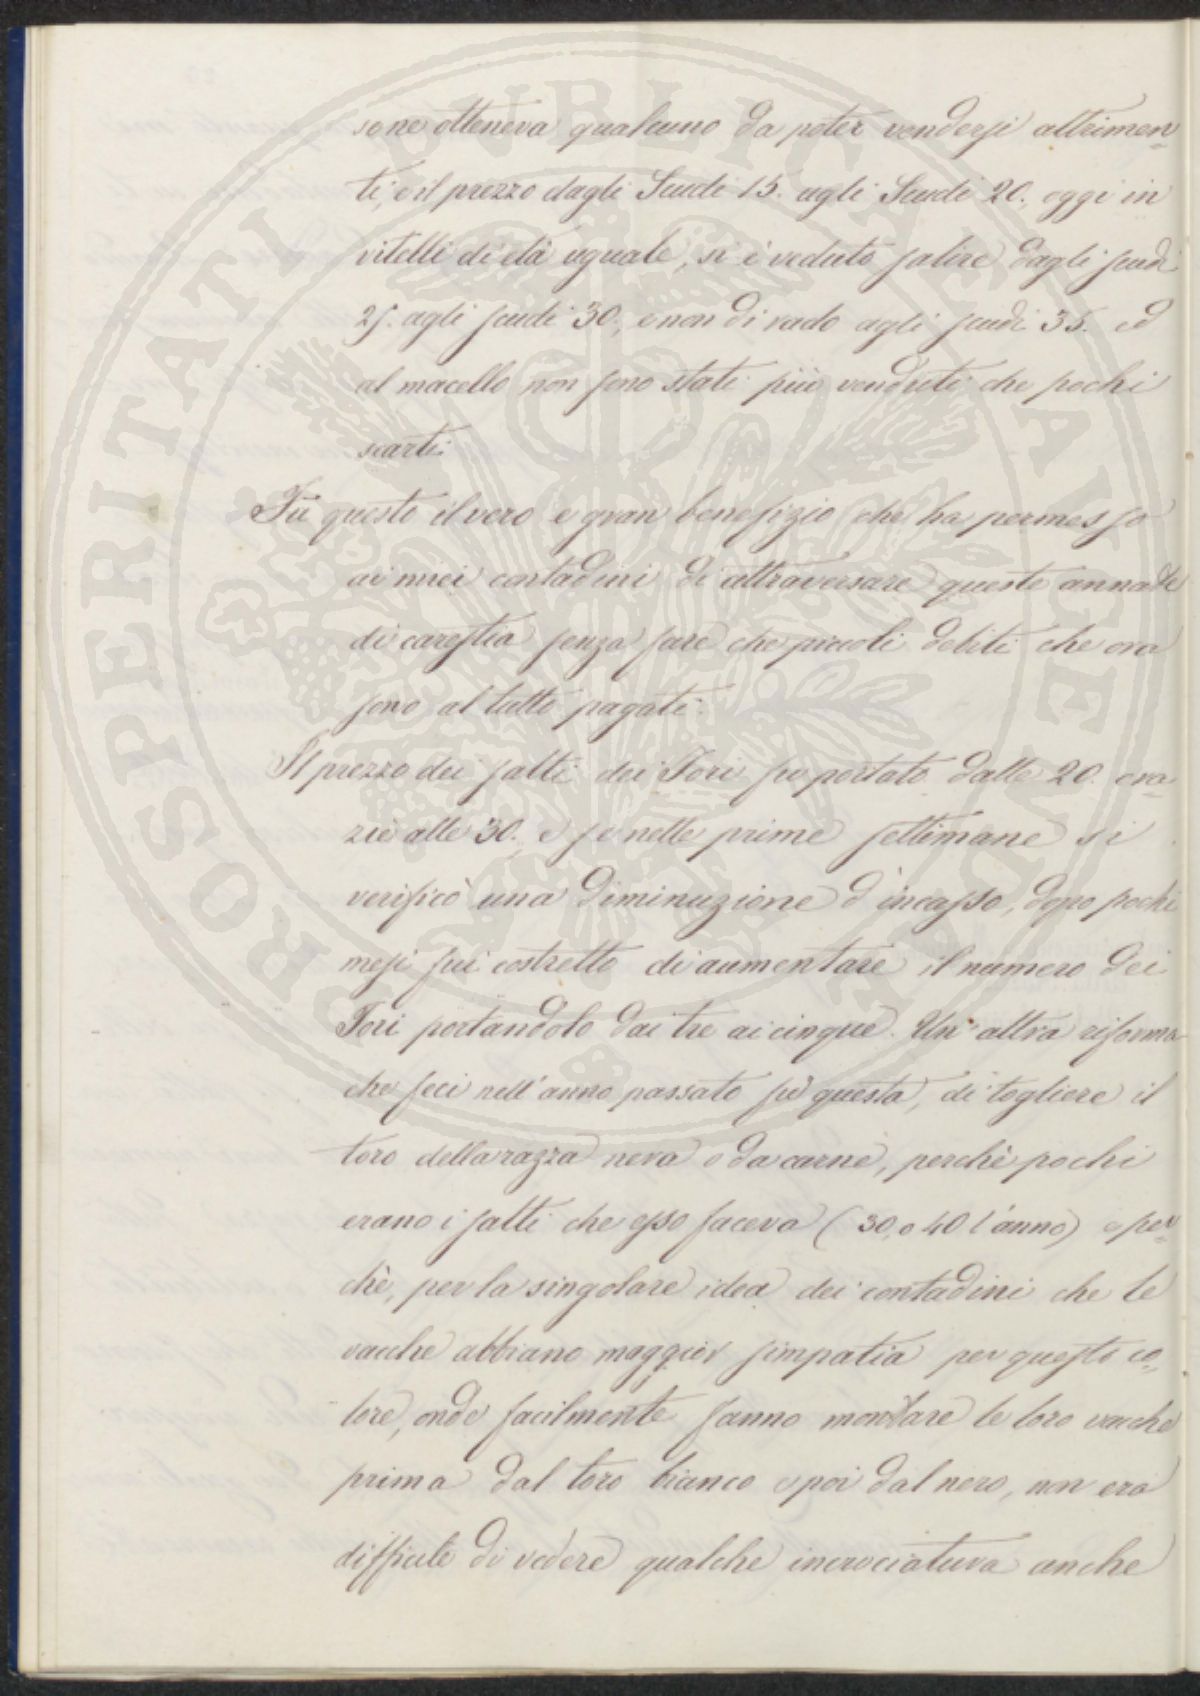 se ne otteneva qualcuno da poter vendersi altrimen=
ti, e il prezzo dagli Scudi 15. agli Scudi 20., oggi in
vitelli di età uguale, si è veduto salire dagli scudi
25. agli scudi 30., e non di rado agli scudi 35. ed
al macello non sono stati più venduti che pochi
scarti.
Fù questo il vero e gran benefizio che ha permesso
ai miei contadini di attraversare queste annate
di carestia senza fare che piccoli debiti che ora
sono al tutto pagati.
Il prezzo dei salti dei Tori fu portato dalle 20. cra=
zie alle 30., e se nelle prime settimane si
verificò una diminuzione d'incasso, dopo pochi
mesi fui costretto di aumentare il numero dei
Tori portandolo dai tre ai cinque. Un'altra riforma
che feci nell'anno passato fù questa, di togliere il
toro della razza nera o da carne, perchè pochi
erano i salti che esso faceva (30, o 40 l'anno) e per=
chè, per la singolare idea dei contadini che le
vacche abbiano maggior simpatia per questo co=
lore, onde facilmente fanno montare le loro vacche
prima dal toro bianco e poi dal nero, non era
difficile di vedere qualche incrociatura anche
PROSPERITATI PUBLICAE AUGENDAE